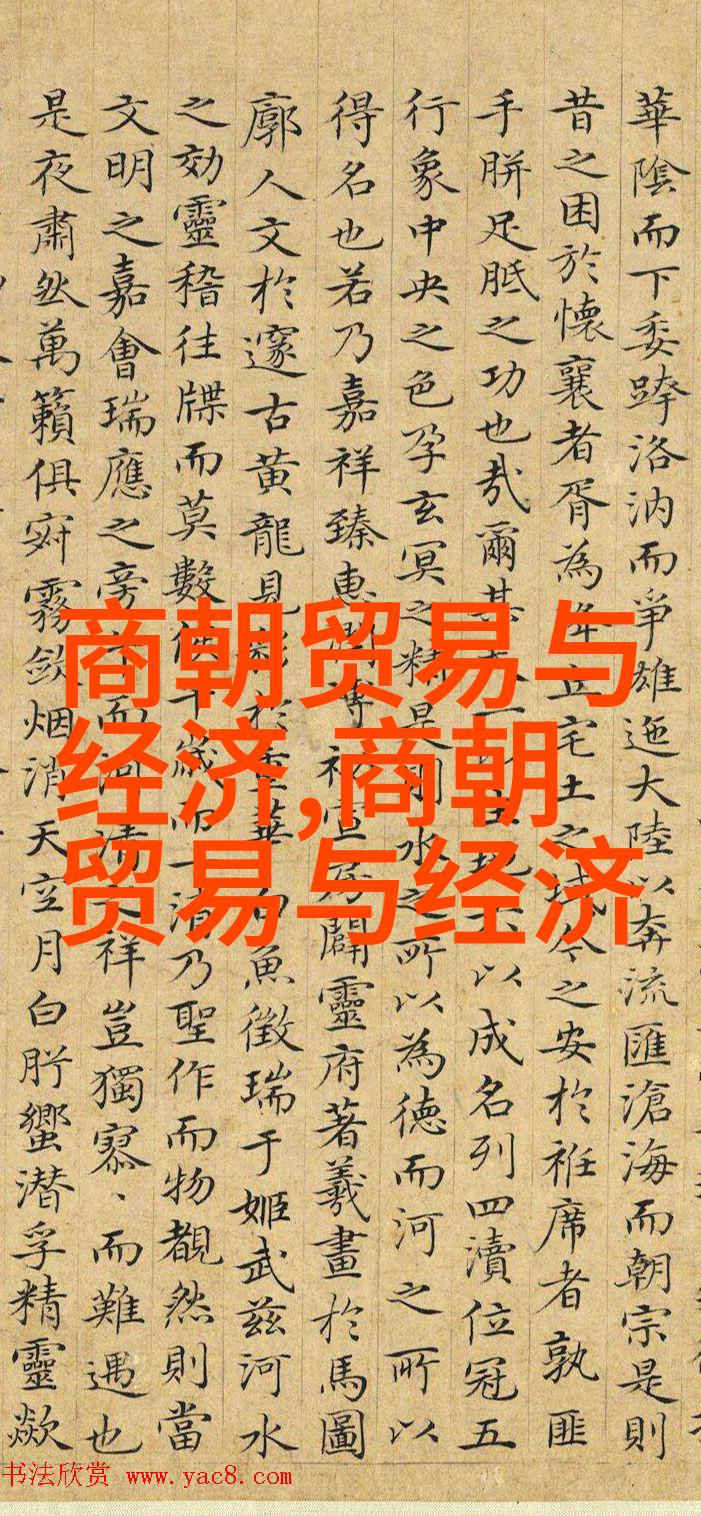 華陰而下委洛汭而爭雄迤大陸以奔流匯滄海而朝宗是則
昔之困於懷襄者胥為立宅土之域今之安於袵席者孰匪
手胼足胝之功也哉爾其以成名列四瀆位冠五
行象中央之色孕玄冥之精是則水之所以為德而河之所以
得名也若乃嘉祥臻惠初宣房闢靈府著羲畫於馬圖
廓人文於邃古黃龍見於重華白魚徵瑞于姬武茲河水
之効靈稽往牒而莫數千歲而一清乃聖作而物覩然則當
文明之嘉會瑞應之旁而河清之祥豈獨寡、而難遇也
是夜肅然萬籟俱寂霧斂烟消天空月白肸蠁潛孚精靈歘
商朝贸易与
经济,商朝
贸易与经济
书法欣赏 www.yac8.com